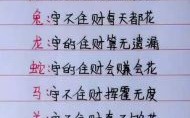 兔:守不住财有天都花
龙:守的住财算无遗漏
蛇:守的住财会赚会花
马:守不住财挥霍无度